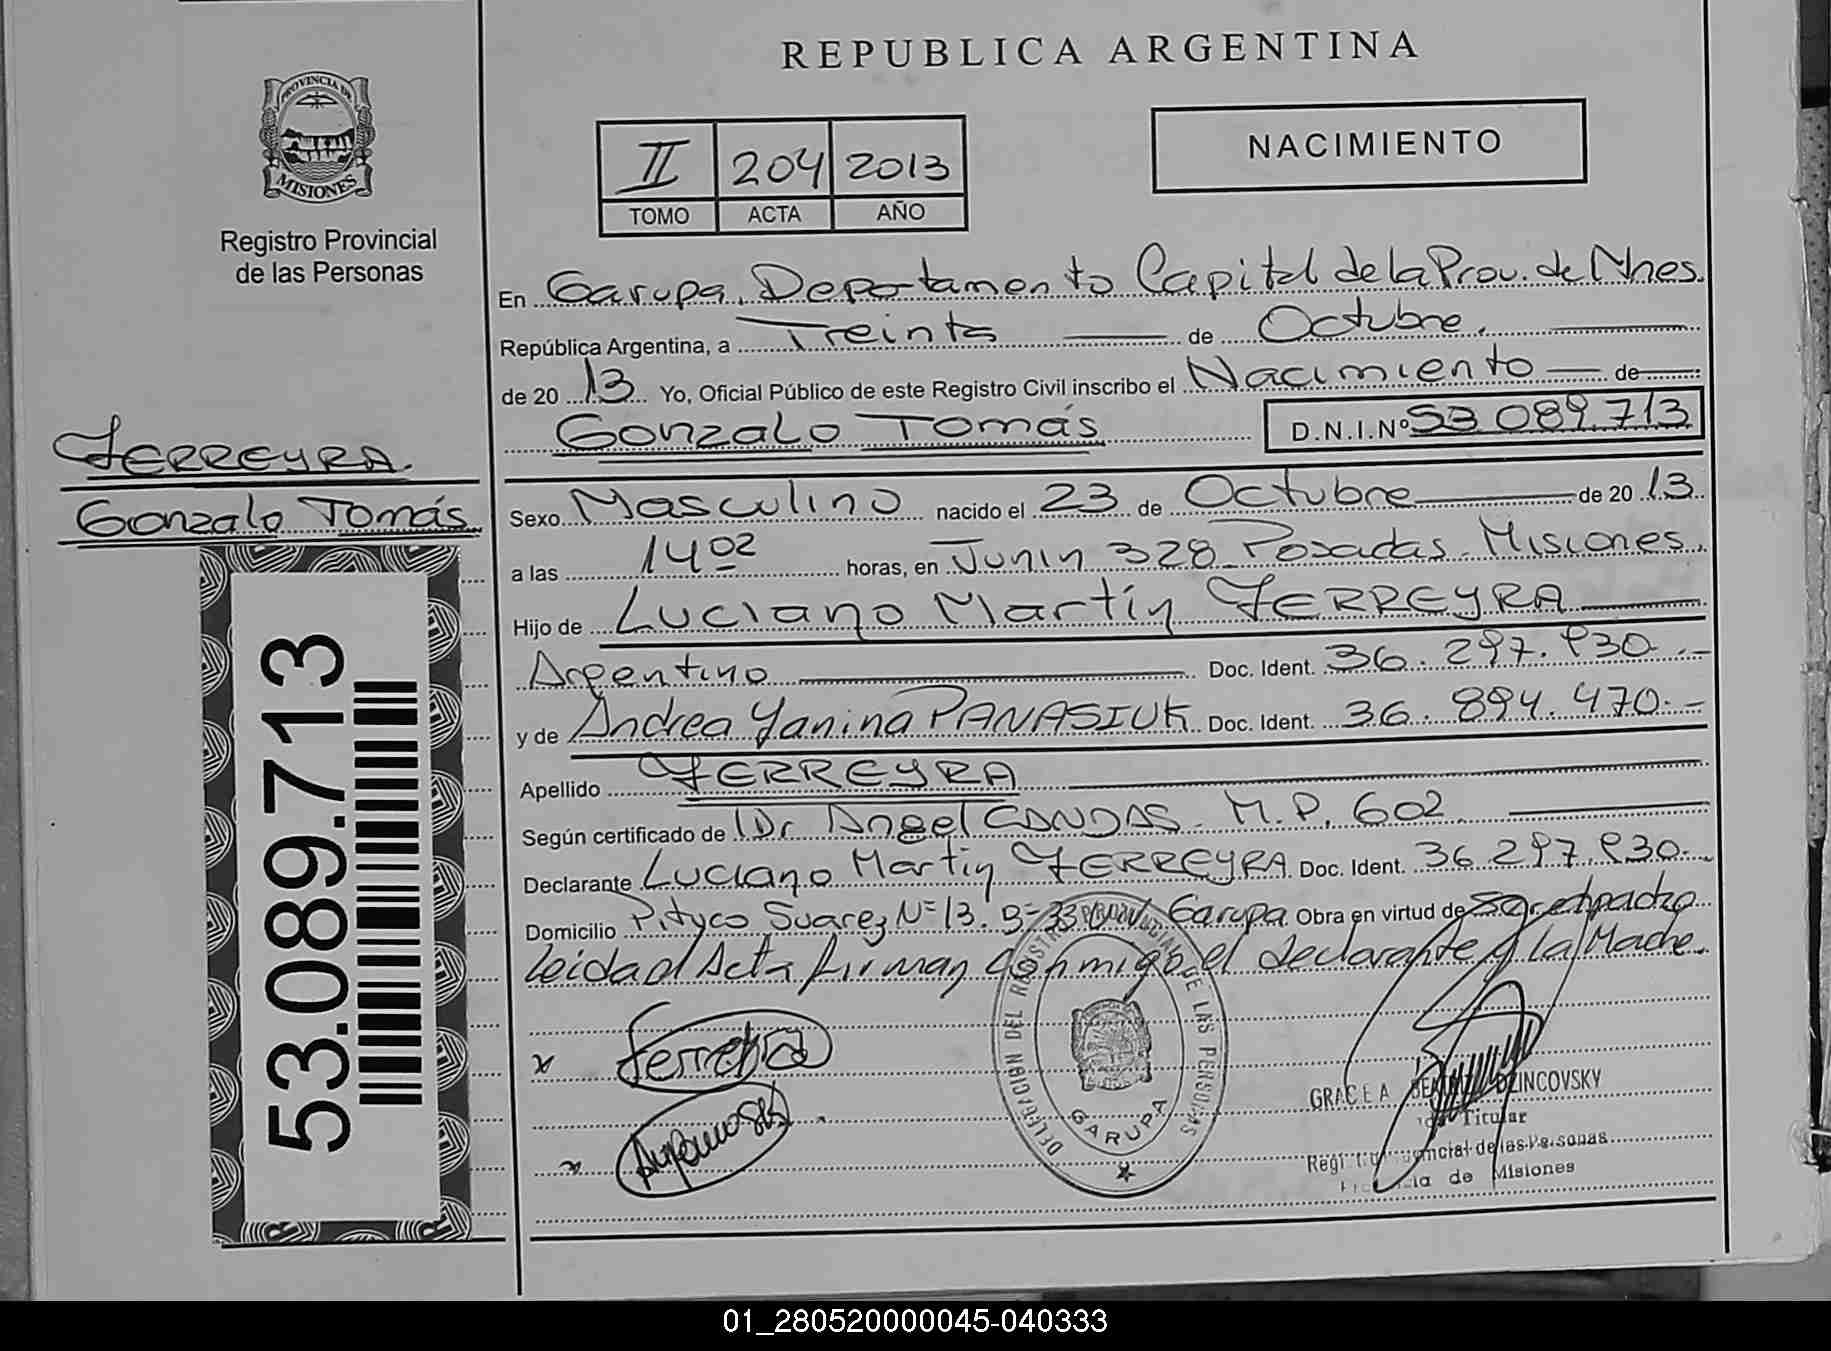 REPUBLICA ARGENTINA
PROVINCIA DE
MISIONES
Registro Provincial
de las Personas
II 204 2013
TOMO ACTA AÑO
NACIMIENTO
En Garupa, Departamento Capital de la Prov. de Mnes.
República Argentina, a Treinta de Octubre.
de 20 13 Yo, Oficial Público de este Registro Civil inscribo el Nacimiento de
Gonzalo Tomás D.N.I.Nº 53 089.713
FERREYRA
Gonzalo Tomás
53.089.713
Sexo Masculino nacido el 23 de Octubre de 20 13
a las 14 02 horas, en Junin 328 Posadas - Misiones.
Hijo de Luciano Martín FERREYRA
Argentino Doc. Ident. 36.297.930.-
y de Andrea Yanina PANASIUK Doc. Ident. 36.894.470.-
Apellido FERREYRA
Según certificado de Dr Angel M.P. 602
Declarante Luciano Martin FERREYRA. Doc. Ident. 36.297.930.
Domicilio Suarez Nº 13. Garupa Obra en virtud de
Leida el Acta firman conmigo el declarante y la Madre.
x Ferreyra
x
DELEGACION DEL REGISTRO PROVINCIAL DE LAS PERSONAS
GARUPA
DZINCOVSKY
Titular
Provincial de las Personas
de Misiones
01_280520000045-040333